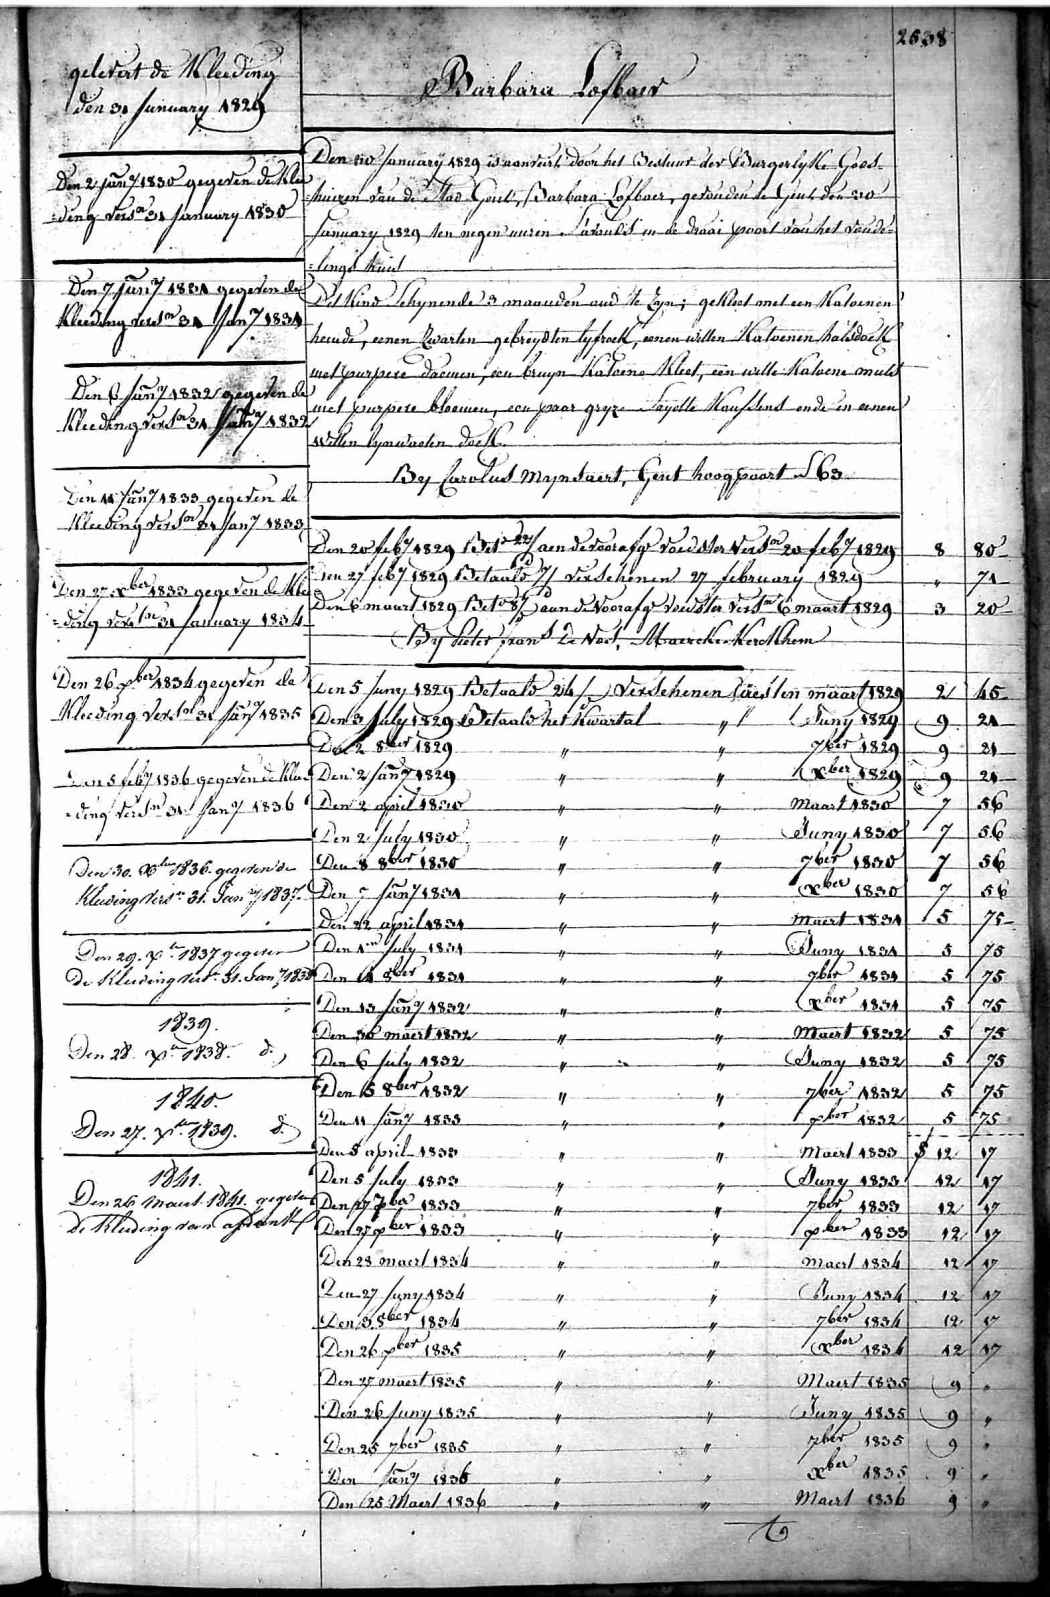 2638
gelevert de Kleeding
den 31 January 1829
Den 2 Jany 1830 gegeven de Klee
=ding versn 31 January 1830
Den 7 Jany 1831 gegeven de
Kleeding versn 31 Jany 1831
Den 6 Jany 1832 gegeven de
Kleeding versn 31 Jany 1832
Den 11 Jany 1833 gegeven de
Kleeding versn 31 Jany 1833
Den 27 xber 1833 gegeven de Klee
=ding versn 31 January 1834
Den 26 xber 1834 gegeven de
Kleeding versn 31 Jany 1835
Den 5 feby 1836 gegeven de Klee
=ding versn 31 Jany 1836
Den 30. xber 1836. gegeven de
Kleeding versn 31. Jany 1837.
Den 29. xber 1837 gegeven
de Kleeding versn 31. Jany 1838
1839.
Den 28. xber 1838. do
1840.
Den 27. xber 1839. do
1841.
Den 26 Maert 1841. gegeven
de Kleeding van
Barbara Lofbaer
Den 30 January 1829 is aenveirt door het Bestuur der Burgerlyke Gods-
=huizen van de Stad Gent, Barbara Lofbaer, gevonden te Gent den 30
January 1829 ten negen uuren s'avonds in de draai poort van het vonde-
=lings huis
Dit Kind schynende 3 maanden oud te zyn; gekleet met een Katoenen
hemde, eenen zwarten gebreydten lyfrock, eenen witten Katoenen halsdoek
met purpere bloemen, een bruyn Katoene Kleet, een witte Katoene muts
met purpere bloemen, een paar gryze Sayette Kousskens ende in eenen
witten lynwaeten doek.
By Carolus Mynsaert, Gent hoogpoort L 63
Den 20 feby 1829 Beto 22/ aen de voorafge voedster versn 20 feby 1829 8 80
Den 27 feby 1829 Betaald 7/ verschenen 27 february 1829 " 71
Den 6 maart 1829 Beto 8/ aan de voorafge voedster versn 6 maart 1829 3 20
By Pieter frans De Noet, Maercke Kerckhem
Den 5 Juny 1829 Betaald 24/ verschenen eersten maart 1829 2 45
Den 3 July 1829 Betaald het Kwartal " Juny 1829 9 21
Den 2 8ber 1829 " " 7ber 1829 9 21
Den 2 Jany 1829 " " xber 1829 9 21
Den 2 april 1830 " " Maart 1830 7 56
Den 2 July 1830 " " Juny 1830 7 56
Den 8 8ber 1830 " " 7ber 1830 7 56
Den 7 Jany 1831 " " xber 1830 7 56
Den 22 april 1831 " " Maert 1831 5 75
Den 1n July 1831 " " Juny 1831 5 75
Den 14 8ber 1831 " " 7ber 1831 5 75
Den 13 Jany 1832 " " xber 1831 5 75
Den 30 maert 1832 " " Maert 1832 5 75
Den 6 July 1832 " " Juny 1832 5 75
Den 5 8ber 1832 " " 7ber 1832 5 75
Den 11 Jany 1833 " " xber 1832 5 75
Den 5 april 1833 " " Maert 1833 12 17
Den 5 July 1833 " " Juny 1833 12 17
Den 27 7ber 1833 " " 7ber 1833 12 17
Den 27 xber 1833 " " xber 1833 12 17
Den 28 maert 1834 " " Maert 1834 12 17
Den 27 Juny 1834 " " Juny 1834 12 17
Den 3 8ber 1834 " " 7ber 1834 12 17
Den 26 xber 1835 " " xber 1834 12 17
Den 27 maert 1835 " " Maert 1835 9 "
Den 26 Juny 1835 " " Juny 1835 9 "
Den 25 7ber 1835 " " 7ber 1835 9 "
Den Jany 1836 " " xber 1835 9 "
Den 25 Maert 1836 " " Maert 1836 9 "